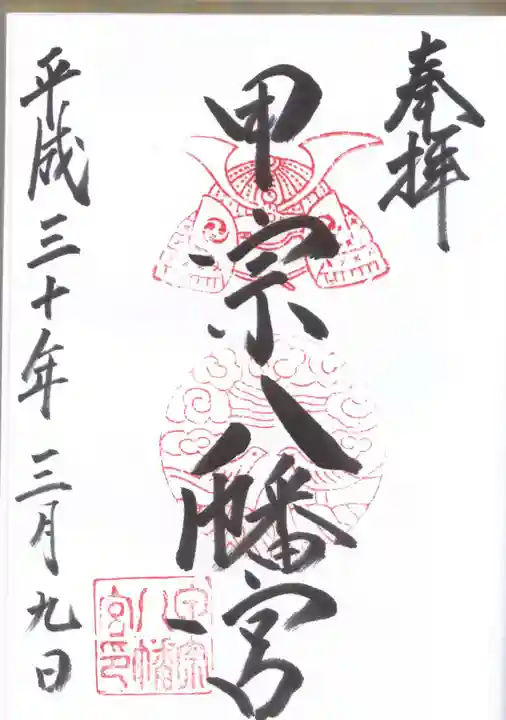 奉拝
甲宗八幡宮
平成三十年三月九日
甲宗
八幡
宮印